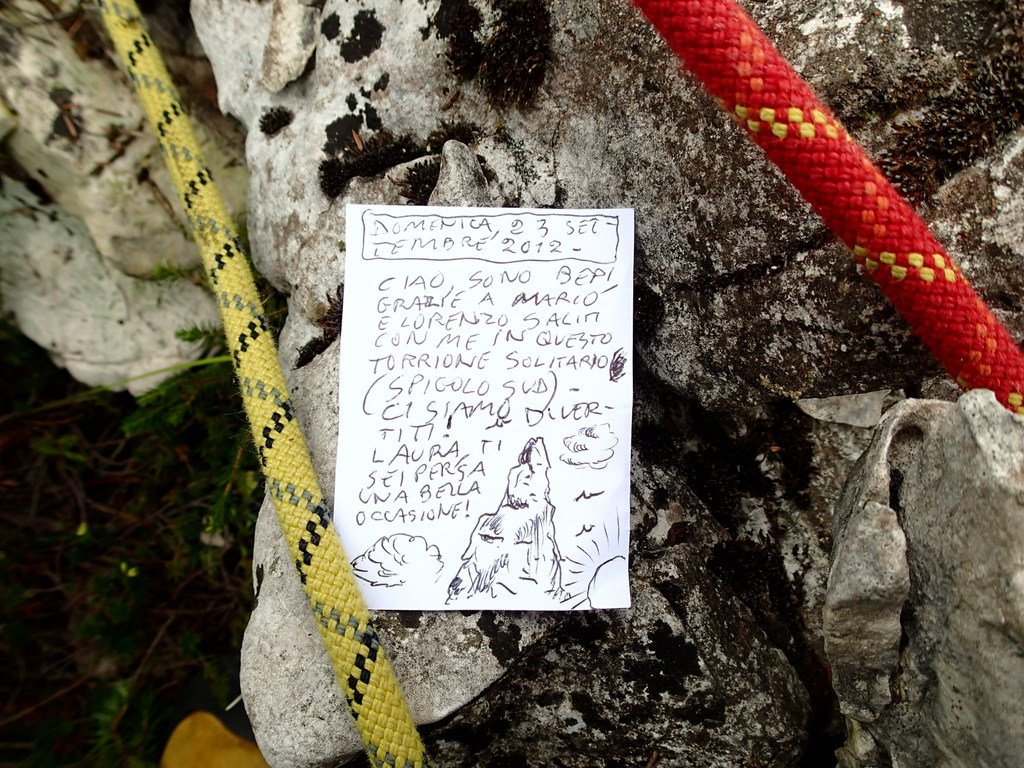 DOMENICA, 23 SET-
TEMBRE 2012 -
CIAO, SONO BEPI,
GRAZIE A MARIO
E LORENZO SALITI
CON ME IN QUESTO
TORRIONE SOLITARIO
(SPIGOLO SUD) -
CI SIAMO DIVER-
TITI! -
LAURA, TI
SEI PERSA
UNA BELLA
OCCASIONE!